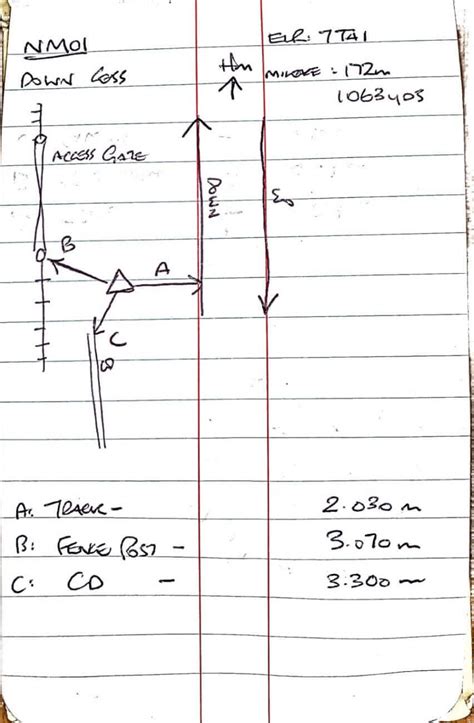 NM01
ELR: TTA1
DOWN CESS
MILEAGE: 172m
1063yds
ACCESS GATE
DOWN
B
A
C
A: TRACK - 2.030 m
B: FENCE POST - 3.070 m
C: CD - 3.300 m